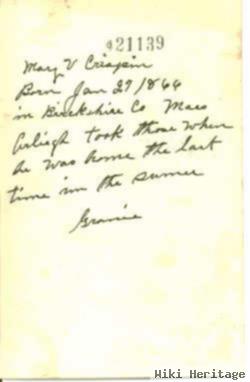 21139
Mary V Crispin
Born Jan 29 1866
in Berkshire Co Mass
Arleigh took those when
he was home the last
time in the sumer
Grannie
Wiki Heritage